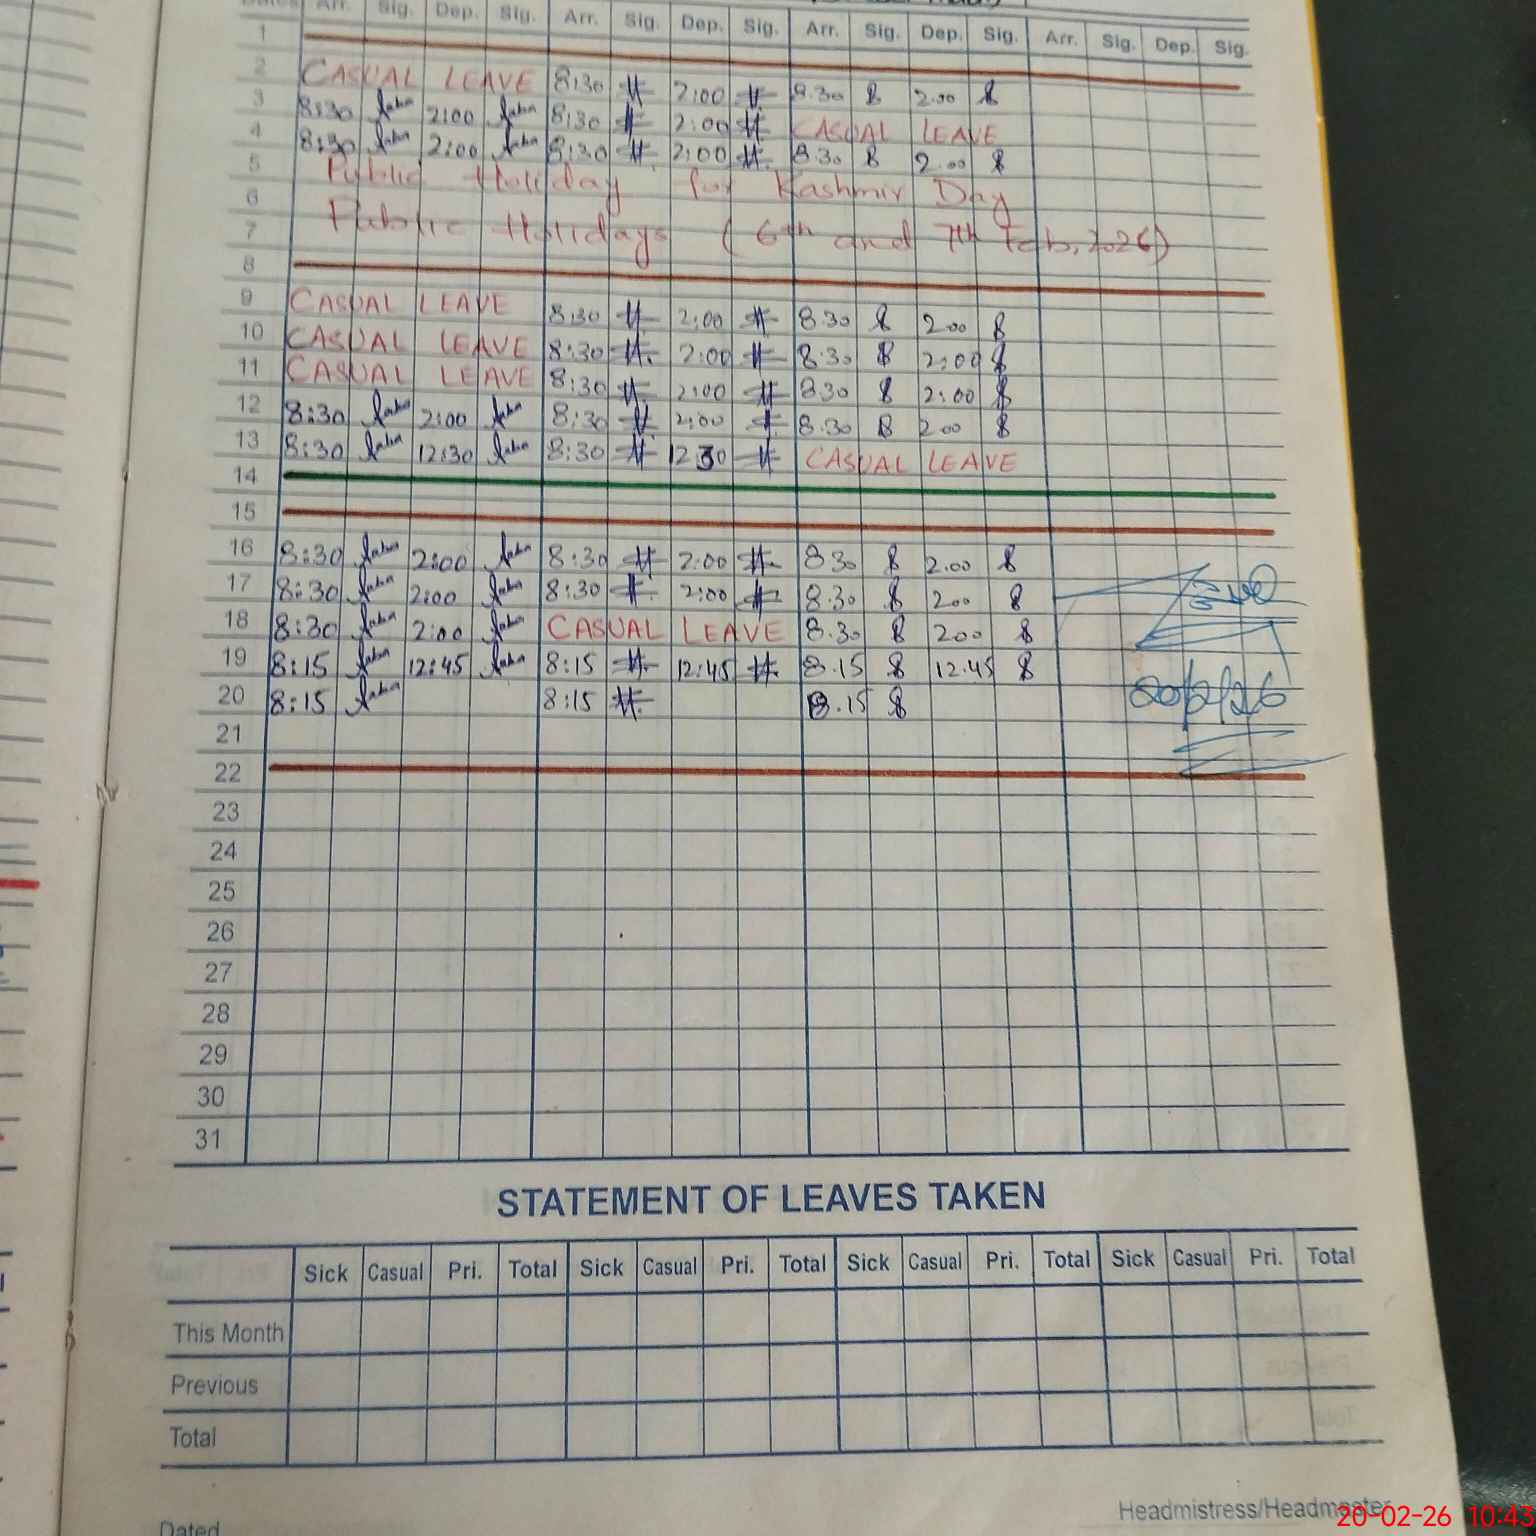 Dates Arr. Sig. Dep. Sig. Arr. Sig. Dep. Sig. Arr. Sig. Dep. Sig. Arr. Sig. Dep. Sig.
1
2 CASUAL LEAVE 8:30 2:00 8.30 2.00
3 8:30 2:00 8:30 2:00 CASUAL LEAVE
4 8:30 2:00 8:30 2:00 8.30 2.00
5 Public Holiday for Kashmir Day
6
7 Public Holidays (6th and 7th Feb, 2026)
8
9 CASUAL LEAVE 8:30 2:00 8.30 2.00
10 CASUAL LEAVE 8:30 2:00 8.30 2:00
11 CASUAL LEAVE 8:30 2:00 8.30 2:00
12 8:30 2:00 8:30 2:00 8.30 2.00
13 8:30 12:30 8:30 12 30 CASUAL LEAVE
14
15
16 8:30 2:00 8:30 2:00 8.30 2.00
17 8:30 2:00 8:30 2:00 8.30 2.00
18 8:30 2:00 CASUAL LEAVE 8.30 2.00
19 8:15 12:45 8:15 12:45 8.15 12.45
20 8:15 8:15 8.15 20/2/26
21
22
23
24
25
26
27
28
29
30
31
STATEMENT OF LEAVES TAKEN
Sick Casual Pri. Total Sick Casual Pri. Total Sick Casual Pri. Total Sick Casual Pri. Total
This Month
Previous
Total
Headmistress/Headmaster
Dated
20-02-26 10:43